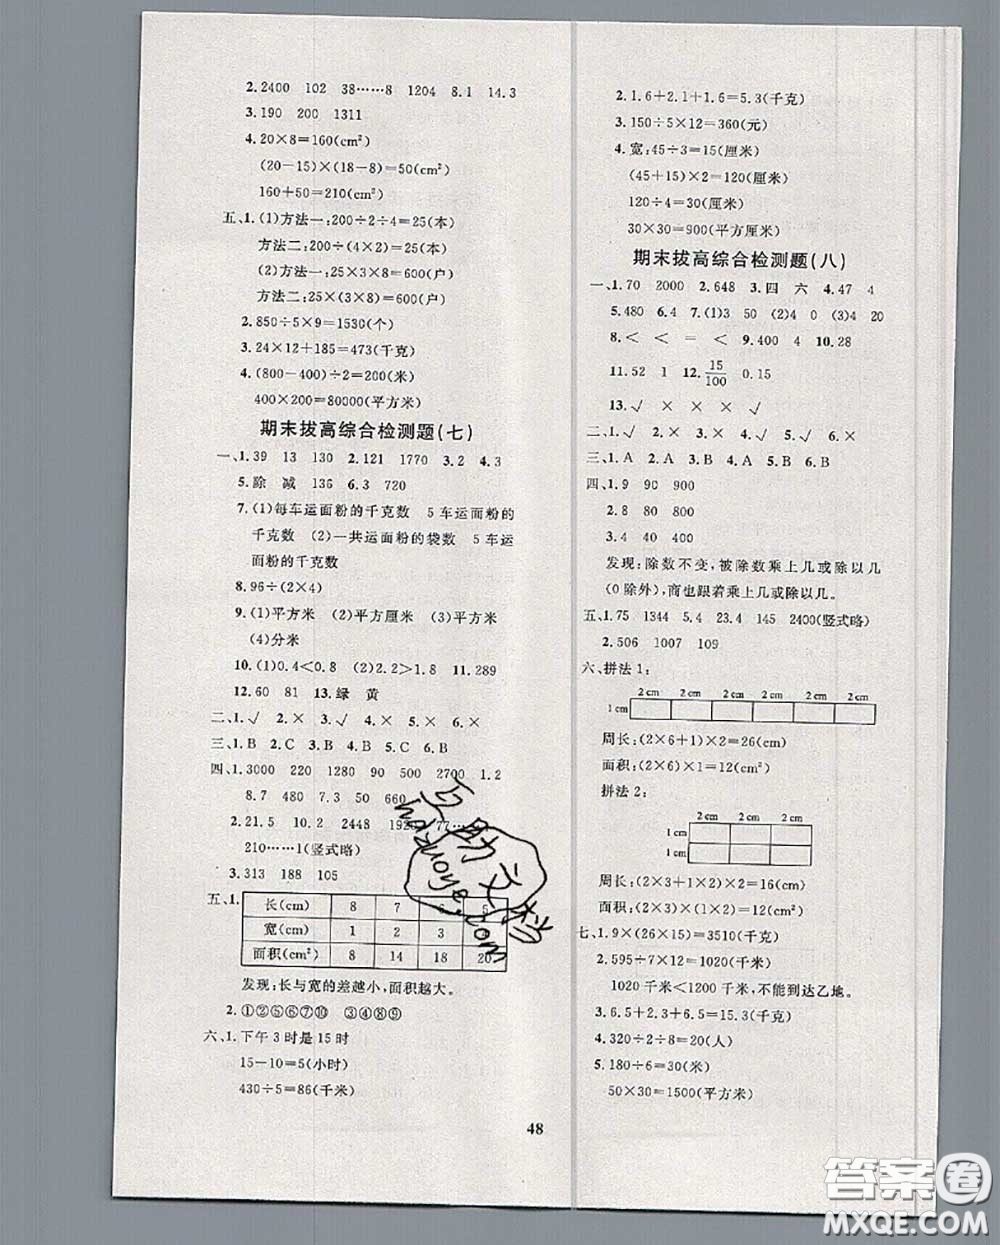 2.2400 102 38……8 1204 8.1 14.3
3.190 200 1311
4.20×8=160(cm²)
(20-15)×(18-8)=50(cm²)
160+50=210(cm²)
五、1.(1)方法一:200÷2÷4=25(本)
方法二:200÷(4×2)=25(本)
(2)方法一:25×3×8=600(户)
方法二:25×(3×8)=600(户)
2.850÷5×9=1530(个)
3.24×12+185=473(千克)
4.(800-400)÷2=200(米)
400×200=80000(平方米)
期末拔高综合检测题(七)
一、1.39 13 130 2.121 1770 3.2 4.3
5.除 减 136 6.3 720
7.(1)每车运面粉的千克数 5车运面粉的
千克数 (2)一共运面粉的袋数 5车运
面粉的千克数
8.96÷(2×4)
9.(1)平方米 (2)平方厘米 (3)平方米
(4)分米
10.(1)0.4<0.8 (2)2.2>1.8 11.289
12.60 81 13.绿 黄
二、1.√ 2.× 3.√ 4.× 5.× 6.×
三、1.B 2.C 3.B 4.B 5.C 6.B
四、1.3000 220 1280 90 500 2700 1.2
8.7 480 7.3 50 660
2.21.5 10.2 2448 1920 77……
210……1(竖式略)
3.313 188 105
五、1.
长(cm) 8 7 5
宽(cm) 1 2 3
面积(cm²) 8 14 18 20
发现:长与宽的差越小,面积越大。
2.①②⑤⑥⑦⑩ ③④⑧⑨
六、1.下午3时是15时
15-10=5(小时)
430÷5=86(千米)
48
2.1.6+2.1+1.6=5.3(千克)
3.150÷5×12=360(元)
4.宽:45÷3=15(厘米)
(45+15)×2=120(厘米)
120÷4=30(厘米)
30×30=900(平方厘米)
期末拔高综合检测题(八)
一、1.70 2000 2.648 3.四 六 4.47 4
5.480 6.4 7.(1)3 50 (2)4 0 (3)4 20
8.< < = < 9.400 4 10.28
11.52 1 12.15/100 0.15
13.√ × × × √
二、1.√ 2.× 3.√ 4.× 5.√ 6.×
三、1.A 2.A 3.B 4.A 5.B 6.B
四、1.9 90 900
2.8 80 800
3.4 40 400
发现:除数不变,被除数乘上几或除以几
(0除外),商也跟着乘上几或除以几。
五、1.75 1344 5.4 23.4 145 2400(竖式略)
2.506 1007 109
六、拼法1:
2 cm 2 cm 2 cm 2 cm 2 cm 2 cm
1 cm
周长:(2×6+1)×2=26(cm)
面积:(2×6)×1=12(cm²)
拼法2:
2 cm 2 cm 2 cm
1 cm
1 cm
周长:(2×3+1×2)×2=16(cm)
面积:(2×3)×(1×2)=12(cm²)
七、1.9×(26×15)=3510(千克)
2.595÷7×12=1020(千米)
1020千米<1200千米,不能到达乙地。
3.6.5+2.3+6.5=15.3(千克)
4.320÷2÷8=20(人)
5.180÷6=30(米)
50×30=1500(平方米)
答案圈
MXQE.COM